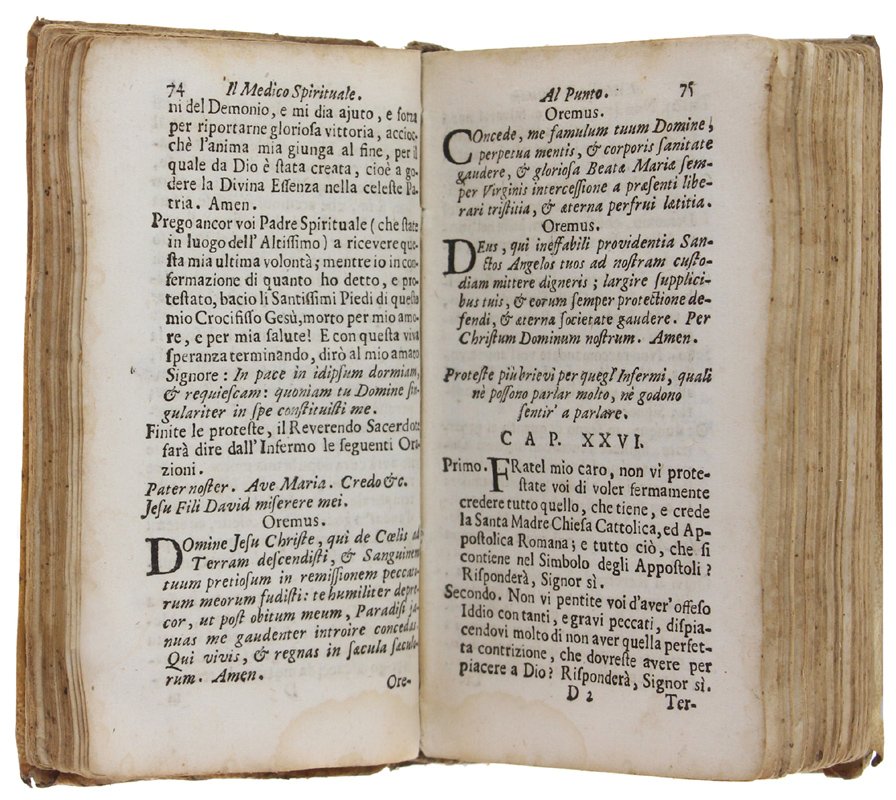 74 Il Medico Spirituale.
ni del Demonio, e mi dia ajuto, e forza
per riportarne gloriosa vittoria, accioc-
chè l'anima mia giunga al fine, per il
quale da Dio è ſtata creata, cioè a go-
dere la Divina Eſſenza nella celeſte Pa-
tria. Amen.
Prego ancor voi Padre Spirituale (che ſtate
in luogo dell' Altiſſimo) a ricevere que-
ſta mia ultima volontà; mentre io in con-
fermazione di quanto ho detto, e pro-
teſtato, bacio li Santiſſimi Piedi di queſto
mio Crocifiſſo Gesù, morto per mio amo-
re, e per mia ſalute! E con queſta viva
ſperanza terminando, dirò al mio amato
Signore: In pace in idipſum dormiam,
& requieſcam: quoniam tu Domine ſin-
gulariter in ſpe conſtituiſti me.
Finite le proteſte, il Reverendo Sacerdote
farà dire dall' Infermo le ſeguenti Ora-
zioni.
Pater noſter. Ave Maria. Credo &c.
Jeſu Fili David miſerere mei.
Oremus.
DOmine Jeſu Chriſte, qui de Cœlis ad
Terram deſcendiſti, & Sanguinem
tuum pretioſum in remiſſionem peccato-
rum meorum fudiſti: te humiliter depre-
cor, ut poſt obitum meum, Paradiſi ja-
nuas me gaudenter introire concedas.
Qui vivis, & regnas in ſæcula ſæculo-
rum. Amen.
Ore-
Al Punto. 75
Oremus.
COncede, me famulum tuum Domine,
perpetua mentis, & corporis ſanitate
gaudere, & glorioſa Beatæ Mariæ ſem-
per Virginis interceſſione a præſenti libe-
rari triſtitia, & æterna perfrui lætitia.
Oremus.
DEus, qui ineffabili providentia San-
ctos Angelos tuos ad noſtram cuſto-
diam mittere digneris; largire ſupplici-
bus tuis, & eorum ſemper protectione de-
fendi, & æterna ſocietate gaudere. Per
Chriſtum Dominum noſtrum. Amen.
Proteſte più brievi per quegl' Infermi, quali
nè poſſono parlar molto, nè godono
ſentir' a parlare.
CAP. XXVI.
Primo. FRatel mio caro, non vi prote-
ſtate voi di voler fermamente
credere tutto quello, che tiene, e crede
la Santa Madre Chieſa Cattolica, ed Ap-
poſtolica Romana; e tutto ciò, che ſi
contiene nel Simbolo degli Appoſtoli?
Riſponderà, Signor sì.
Secondo. Non vi pentite voi d'aver' offeſo
Iddio con tanti, e gravi peccati, diſpia-
cendovi molto di non aver quella perfet-
ta contrizione, che dovreſte avere per
piacere a Dio? Riſponderà, Signor sì.
D 2 Ter-